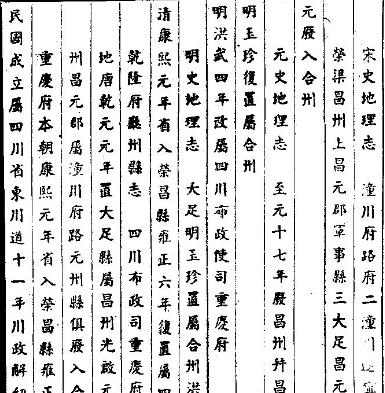 宋史地理志　潼川府路府二潼川遂寧
榮渠昌州上昌元郡軍事縣三大足昌元
元廢入合州
元史地理志　至元十七年廢昌州幷昌
明玉珍復置屬合州
明洪武四年改屬四川布政使司重慶府
明史地理志　大足明玉珍置屬合州洪
清康熙元年省入榮昌縣雍正六年復置屬
乾隆府廳州縣志　四川布政司重慶府
地唐乾元元年置大足縣屬昌州光啟元
州昌元郡屬潼川府路元州縣俱廢入合
重慶府本朝康熙元年省入榮昌縣雍正
民國成立屬四川省東川道十一年川政解紐